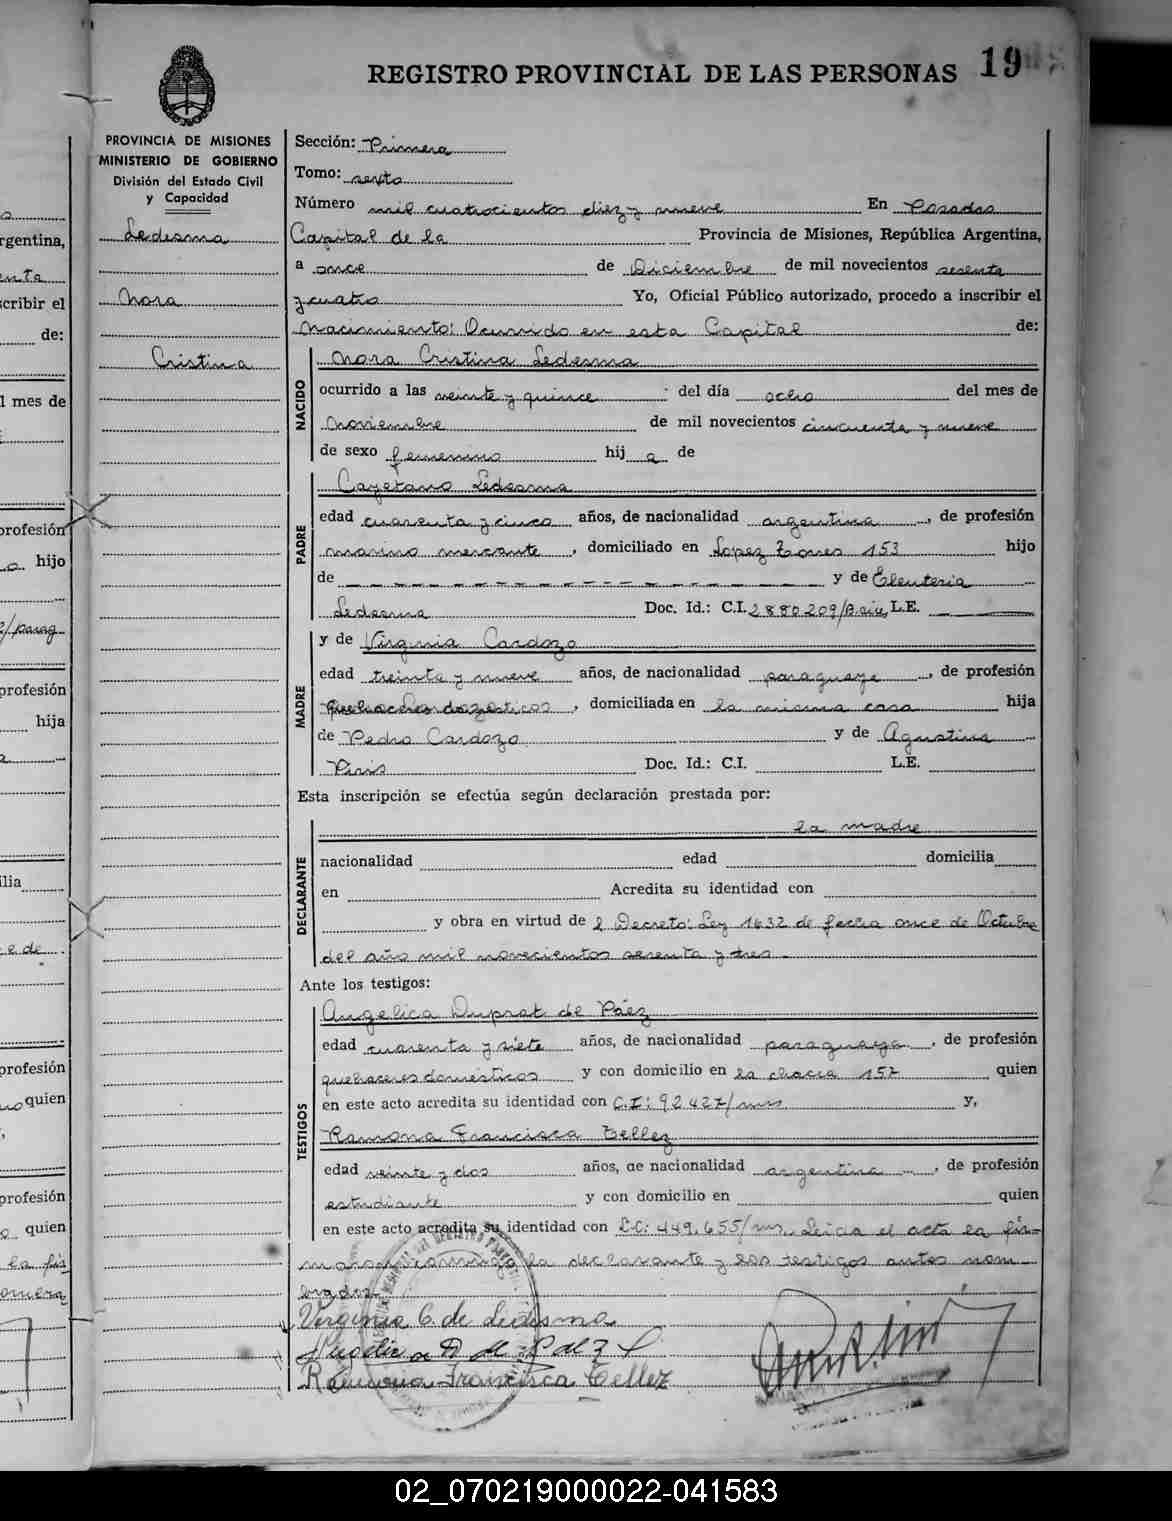 REGISTRO PROVINCIAL DE LAS PERSONAS 19
PROVINCIA DE MISIONES
MINISTERIO DE GOBIERNO
División del Estado Civil
y Capacidad
Ledesma
Nora
Cristina
Sección: Primera
Tomo: sexto
Número mil cuatrocientos diez y nueve En Posadas
Capital de la Provincia de Misiones, República Argentina,
a once de Diciembre de mil novecientos sesenta
y cuatro Yo, Oficial Público autorizado, procedo a inscribir el
Nacimiento: Ocurrido en esta Capital de:
NACIDO
Nora Cristina Ledesma
ocurrido a las veinte y quince del día ocho del mes de
Noviembre de mil novecientos cincuenta y nueve
de sexo femenino hij a de
PADRE
Cayetano Ledesma
edad cuarenta y cinco años, de nacionalidad argentina, de profesión
marino mercante, domiciliado en Lopez Torres 153 hijo
de y de Eleuteria
Ledesma Doc. Id.: C.I. 2880209/B.aires L.E.
MADRE
y de Virginia Cardozo
edad treinta y nueve años, de nacionalidad paraguaya, de profesión
quehaceres domésticos, domiciliada en la misma casa hija
de Pedro Cardozo y de Agustina
Piris Doc. Id.: C.I. L.E.
Esta inscripción se efectúa según declaración prestada por:
DECLARANTE
la madre
nacionalidad edad domicilia
en Acredita su identidad con
y obra en virtud de l Decreto: Ley 1632 de fecha once de Octubre
del año mil novecientos sesenta y tres.
Ante los testigos:
TESTIGOS
Angelica Duprat de Páez
edad cuarenta y siete años, de nacionalidad paraguaya, de profesión
quehaceres domésticos y con domicilio en la chacra 157 quien
en este acto acredita su identidad con C.I: 92427/mis y,
Ramona Francisca Tellez
edad veinte y dos años, de nacionalidad argentina, de profesión
estudiante y con domicilio en quien
en este acto acredita su identidad con L.C: 449.655/mis. Leida el acta la fir-
man conmigo la declarante y los testigos antes nom-
brados
Virginia C. de Ledesma
Ramona Francisca Tellez
02_070219000022-041583